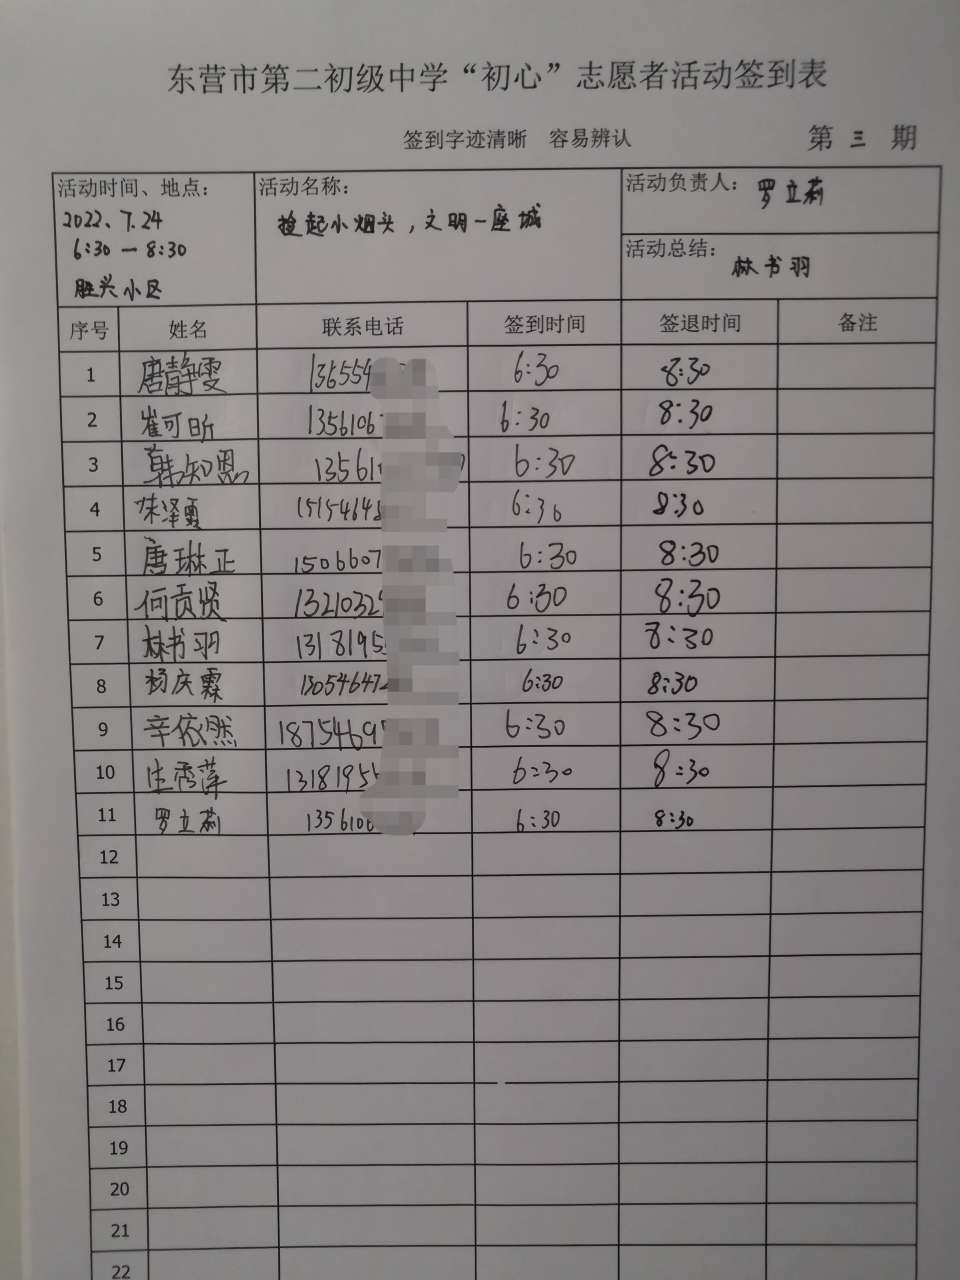 东营市第二初级中学“初心”志愿者活动签到表
签到字迹清晰 容易辨认 第 三 期
活动时间、地点： 活动名称： 活动负责人： 罗立莉
2022、7.24
6:30 — 8:30 捡起小烟头，文明一座城
胜兴小区 活动总结： 林书羽
序号 姓名 联系电话 签到时间 签退时间 备注
1 唐静雯 136554 6:30 8:30
2 崔可昕 1356106 6:30 8:30
3 韩知恩 13561 6:30 8:30
4 泽霞 15154648 6:30 8:30
5 唐琳正 1506607 6:30 8:30
6 何贡贤 1321032 6:30 8:30
7 林书羽 1318195 6:30 8:30
8 杨庆霖 13054647 6:30 8:30
9 辛依然 1875469 6:30 8:30
10 生秀萍 1318195 6:30 8:30
11 罗立莉 135610 6:30 8:30
12
13
14
15
16
17
18
19
20
21
22